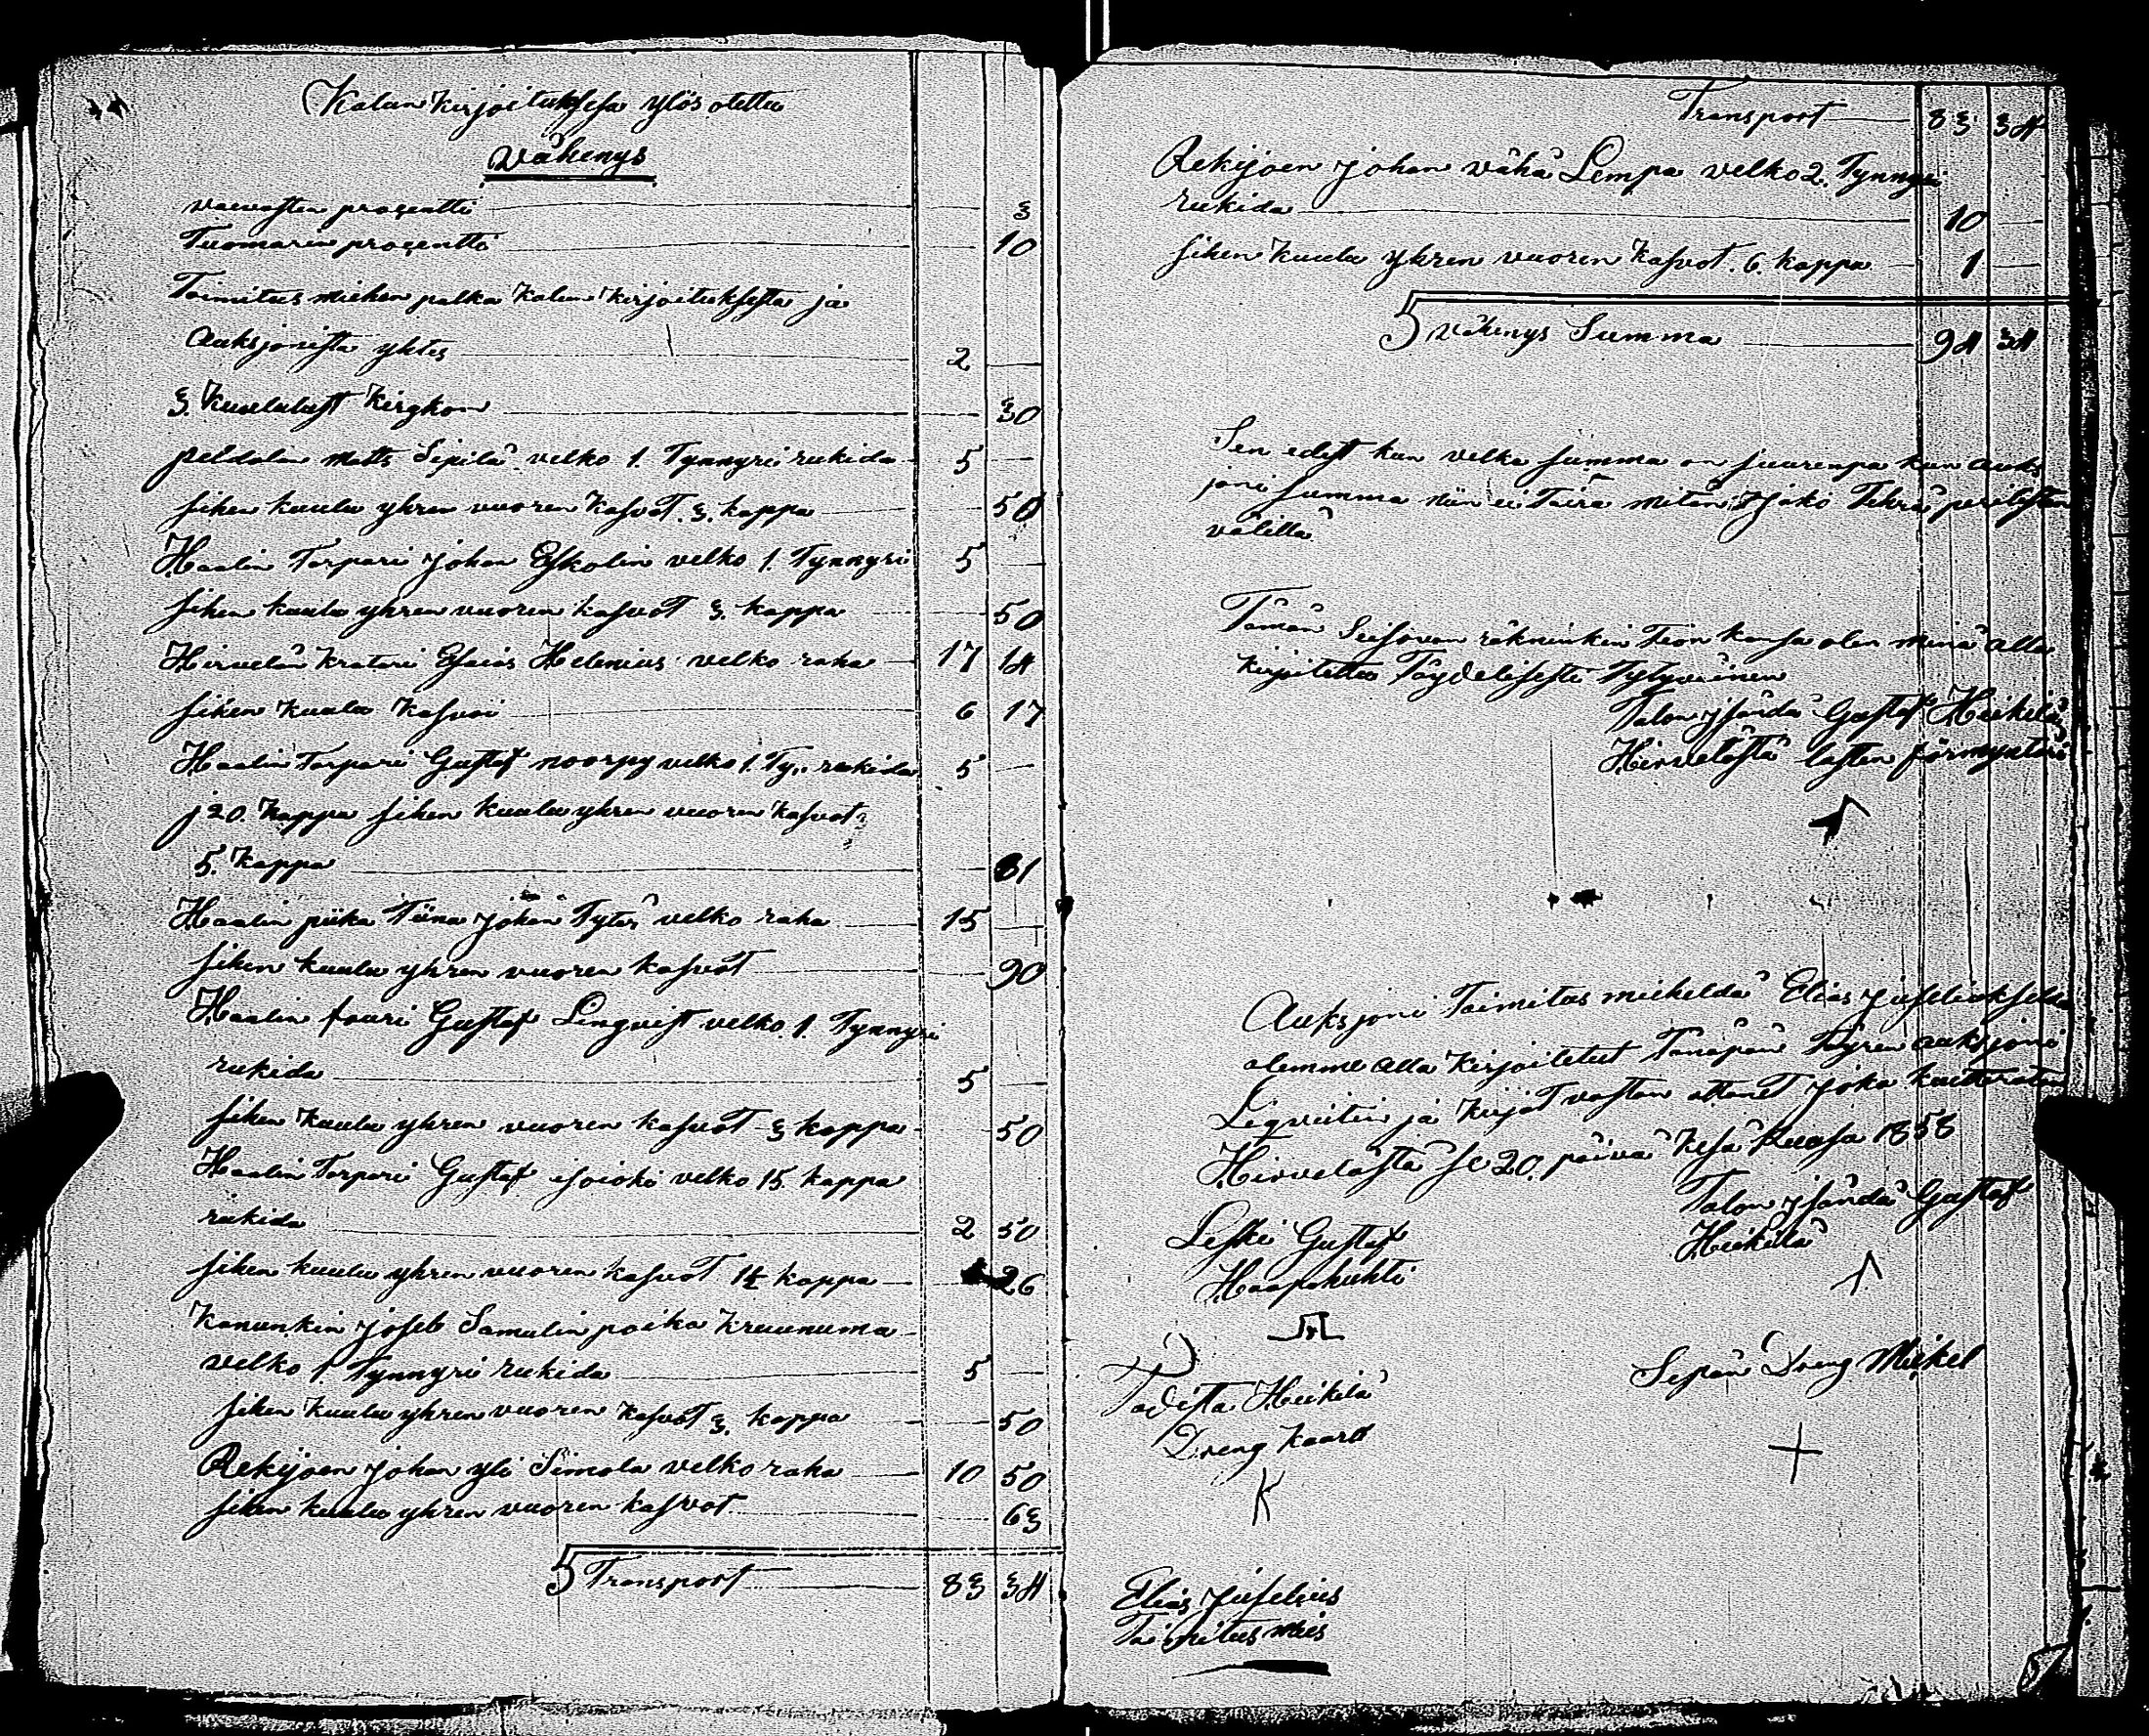 Kalun Kirjoituksesa ylös otettu
vähenys
vaivasten prosentti 3
Tuomarin prosentti 10
Toimitus miehen palka Kalun Kirjoituksesta ja
Auksjonista yhtes 2
3. Kuulutust Kirgkon 30
peldolan matts Sipilä velko 1. Tynnyri rukida 5
sihen kuulu yhren vuoren Kasvot. 3. kappa 50
Haalin Torpari Johan Eskolin velko 1. Tynnyri 5
sihen kuulu yhren vuoren kasvot 3. kappa 50
Hirvelän Kratari Esaias Helenius velko raha 17 14
sihen Kuulu Kasvoi 6 17
Haalin Torpari Gustaf noorpy velko 1. Ty.. rukida 5
j 20. Kappa sihen kuulu yhren vuoren kasvot
5. Kappa 81
Haalin piika Tiina Johan Tytär velko raha 15
sihen kuulu yhren vuoren kasvot 90
Haalin fouri Gustaf Lingvist velko. 1. Tynnyri
rukida 5
sihen Kuulu yhren vuoren kasvot 3 kappa 50
Haalin Torpari Gustaf isoioki velko 15. kappa
rukida 2 50
sihen kuulu yhren vuoren kasvot 1½ kappa 26
Kanunkin Joseb Samulin poika Kruunuma
velko 1 Tynnyri rukida 5
sihen Kuulu yhren vuoren Kasvot 3. kappa 50
Rekijoen Johan yli Simola velko raha 10 50
sihen kuulu yhren vuoren kasvot 63
Transport 83 34
Transport 83 34
Rekijoen Johan vähä Lempa velko 2. Tynnyri
rukida 10
sihen Kuulu yhren vuoren Kasvot. 6. kappa 1
vähenys Summa 94 34
Sen edest kun velka summa on suurenpa kun auks
joni summa niin ei Taira mitän Jako Tehrä perilisten
välillä
Tämän Seisovan räkninkin Tein kansa olen minä alla
Kirjoitettu Täydelisesti Tytyväinen
Talon Jsändä Gustaf Heikilä
Hirvelästä lasten förmyntäri
Auksjoni Toimitus mieheldä Elias Juseliukselda
olemme alla Kirjoitetut Tänäpän Täyren auksjoni
Liqvitin ja Kirjat vastan ottanet joka kuitteratan
Hirvelästä se 20. päivä Kesä Kuusa 1858
Talon jsändä Gustaf
Heikilä
Leski Gustaf
Haapahuhti
Todista Heikilä
Dreng Kaarll
Sepän Dreng Mickel
Elias Juselius
Toimitus mies